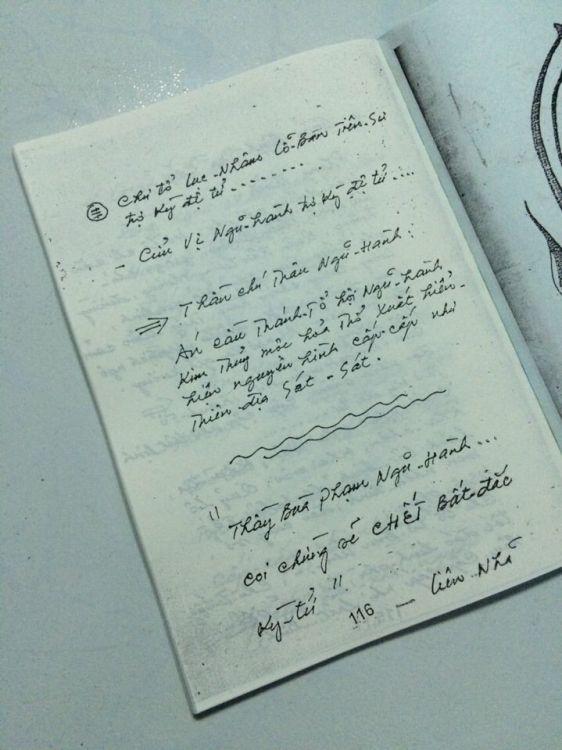 Chư tổ Lục-Nhâm Lỗ-Ban Tiên-Sư
hộ Kỳ đệ tử ........
- Cửu Vị Ngũ-hành hộ Kỳ đệ tử ....
⇒ Thần chú Trấn Ngũ-Hành:
Án cầu Thánh-Tổ hội Ngũ-hành
Kim Thủy mộc hỏa Thổ Xuất hiển-
hiển nguyên hình cấp-cấp như
Thiên-địa Sát - Sát.
" Thầy Bùa phạm Ngũ-Hành...
coi chừng sẽ CHẾT Bất-đắc
Kỳ-tử "
- Liên Nhã
116